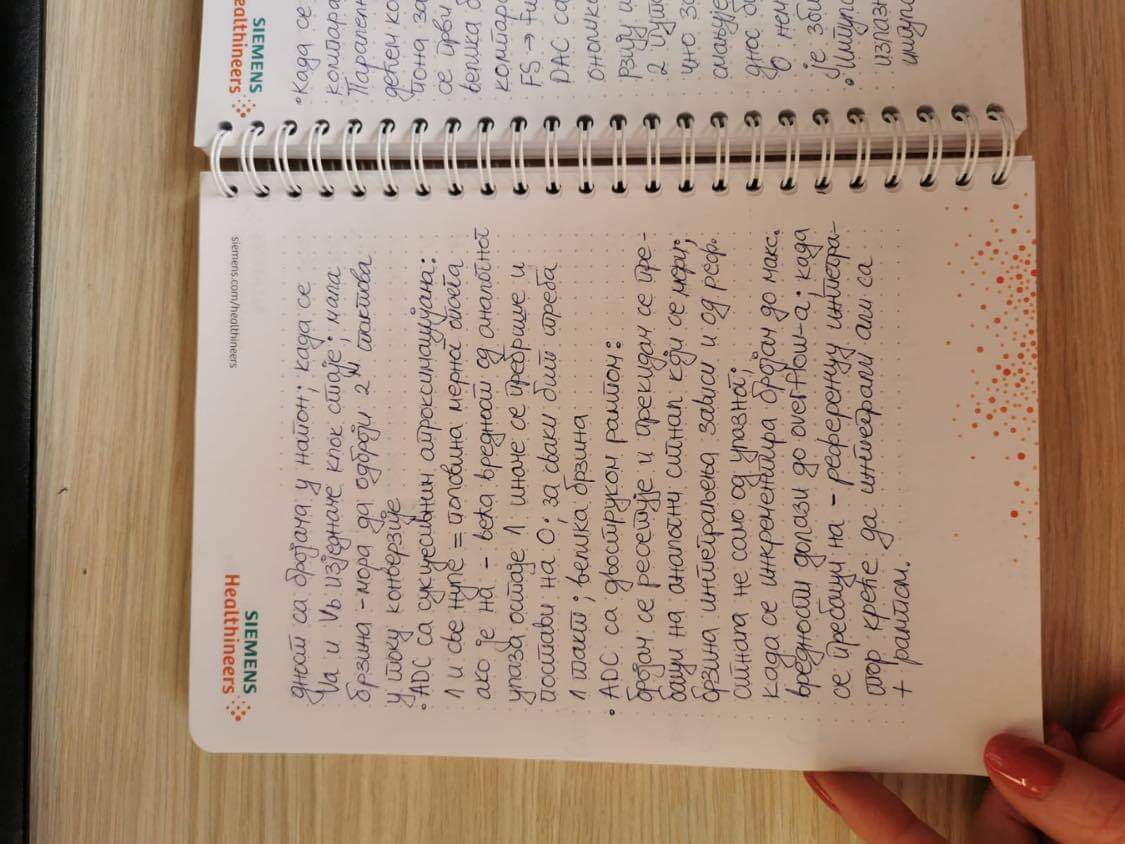 SIEMENS
Healthineers
siemens.com/healthineers
дност са бројача у напон; када се
Va и Vb изједначе клок стаје; мала
брзина - мора да одброји 2ᴺ тактова
у току конверзије
• ADC са сукцесивним апроксимацијама:
1 и све нуле = половина мерног опсега
ако је на - већа вредност од аналогног
улаза остаје 1 иначе се пребрише и
постави на 0; за сваки бит треба
1 такт; велика брзина
• ADC са двоструком рампом:
бројач се ресетује и прекидач се пре-
баци на аналогни сигнал који се мери;
брзина интеграљења зависи и од реф.
сигнала не само од улазног;
када се инкрементира бројач до макс.
вредности долази до overflow-а; када
се пребаци на - референцу интегра-
тор креће да интеграли али са
+ рампом.
SIEMENS
Healthineers
• Када се
компара
Паралелн
дећем ко
пона за
се први
велика б
компара
FS → fu
DAC са
онолико
рзију и
2 пута
чно за
смањује
днос б
О нем
је зби
• Импул
излазн
импул